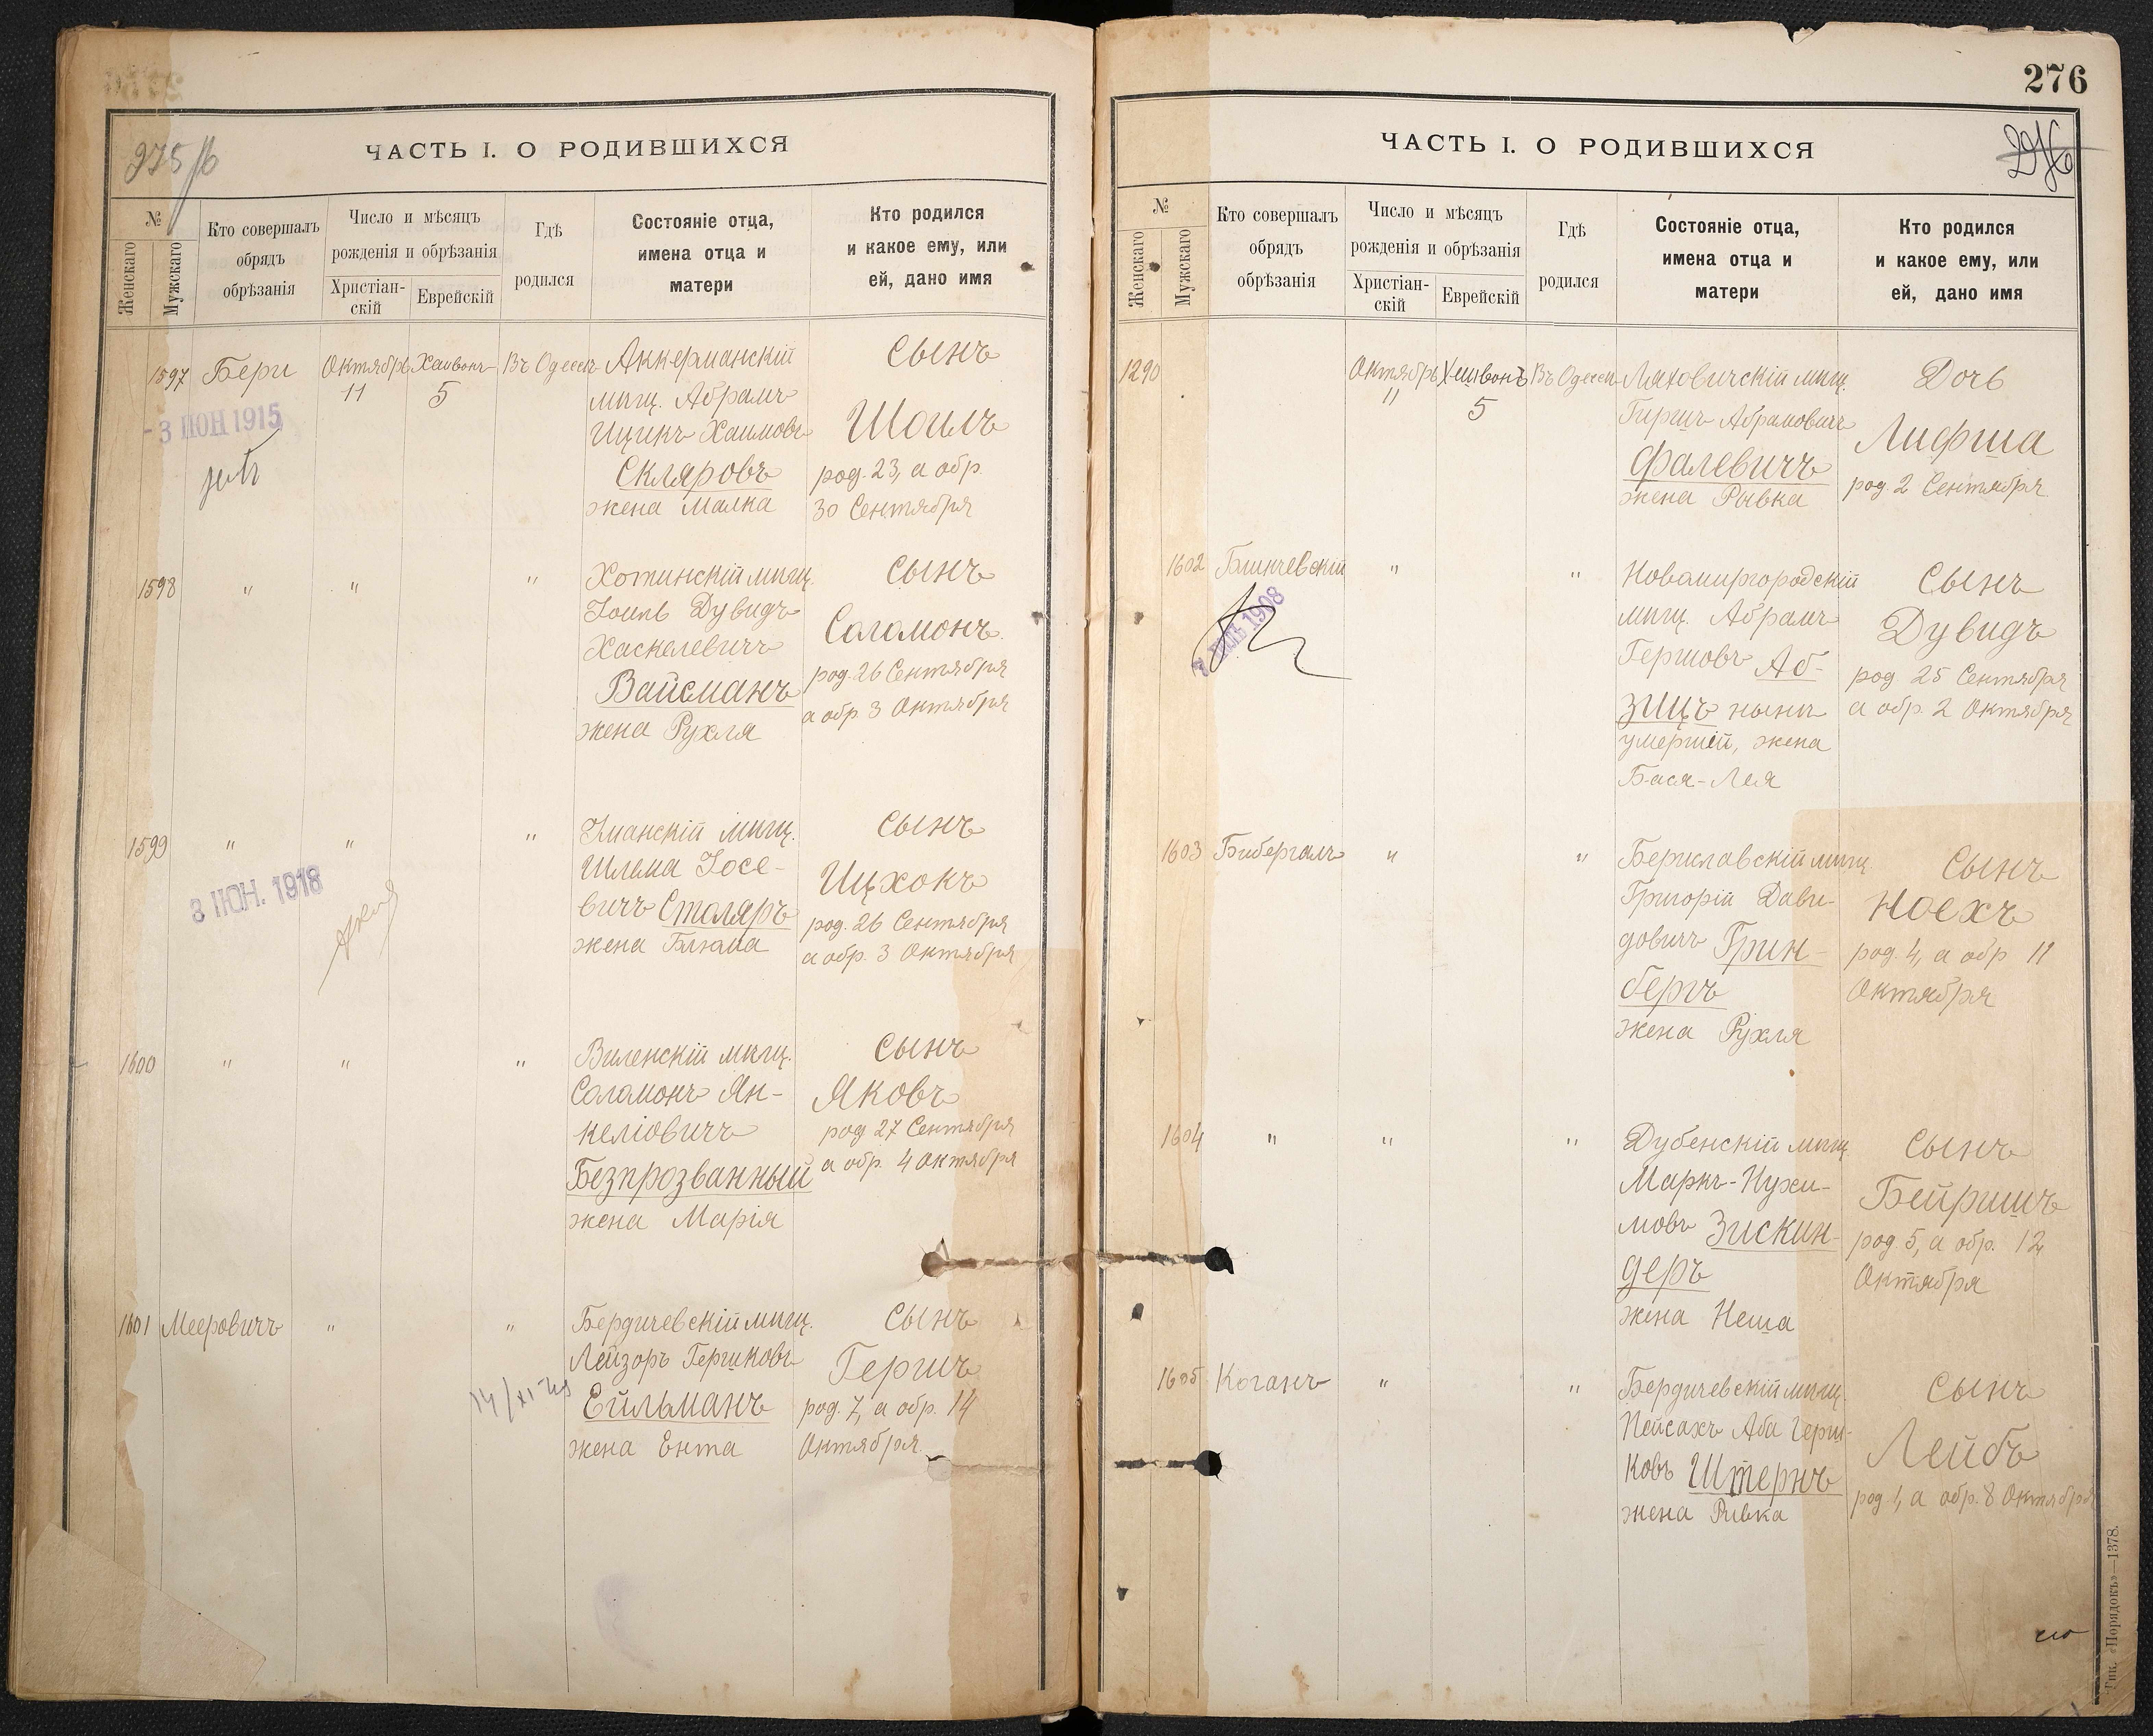 275/б
ЧАСТЬ I. О РОДИВШИХСЯ
№
Женскаго
Мужскаго
Кто совершалъ
обрядъ
обрѣзанія
Число и мѣсяцъ
рожденія и обрѣзанія
Христіан-
скій
Еврейскій
Гдѣ
родился
Состояніе отца,
имена отца и
матери
Кто родился
и какое ему, или
ей, дано имя
1597
Бери
Октябрь
11
5
Въ Одессѣ
Аккерманскій
мѣщ. Абрамъ
Ицикъ Хаимовъ
Скляровъ
жена Малка
Сынъ
Шоилъ
род. 23, а обр.
30 Сентября
- 3 ИЮН 1915
1598
"
"
"
Хотинскій мѣщ.
Іоиль Дувидъ
Хаскелевичъ
Вайсманъ
жена Рухля
Сынъ
Соломонъ
род. 26 Сентября
а обр. 3 Октября
1599
"
"
"
Уманскій мѣщ.
Шлема Іосе-
вичъ Столяръ
жена Блюма
Сынъ
Ицхокъ
род. 26 Сентября
а обр. 3 Октября
3 ИЮН. 1918
1600
"
"
"
Виленскій мѣщ.
Соломонъ Ян-
келіовичъ
Безпрозванный
жена Марія
Сынъ
Яковъ
род 27 Сентября
а обр. 4 Октября
1601
Мееровичъ
"
"
Бердичевскій мѣщ.
Лейзоръ Гершковъ
Ейльманъ
жена Ента
Сынъ
Гершъ
род. 7, а обр. 14
Октября
276
276
ЧАСТЬ I. О РОДИВШИХСЯ
№
Женскаго
Мужскаго
Кто совершалъ
обрядъ
обрѣзанія
Число и мѣсяцъ
рожденія и обрѣзанія
Христіан-
скій
Еврейскій
Гдѣ
родился
Состояніе отца,
имена отца и
матери
Кто родился
и какое ему, или
ей, дано имя
1290
Октябрь
11
Хешвонъ
5
Въ Одессѣ
Ляховичскій мѣщ.
Гиршъ Абрамовичъ
Фалевичъ
жена Рывка
Дочь
Лифша
род. 2 Сентября
1602
"
"
Новомиргородскій
мѣщ. Абрамъ
Гершовъ Аб-
зицъ нынѣ
умершій, жена
Бася-Лея
Сынъ
Дувидъ
род. 25 Сентября
а обр. 2 Октября
1908
1603
Бибергалъ
"
"
Бериславскій мѣщ.
Григорій Дави-
довичъ Грин-
бергъ
жена Рухля
Сынъ
Ноехъ
род. 4, а обр 11
Октября
1604
"
"
"
Дубенскій мѣщ.
Маркъ-Нухи-
мовъ Зискин-
деръ
жена Неша
Сынъ
Бейришъ
род. 5, а обр. 12
Октября
1605
Коганъ
"
"
Бердичевскій мѣщ.
Пейсахъ Аба Герш-
ковъ Штернъ
жена Ривка
Сынъ
Лейбъ
род. 1, а обр. 8 Октября
Тип. «Порядокъ»—1378.